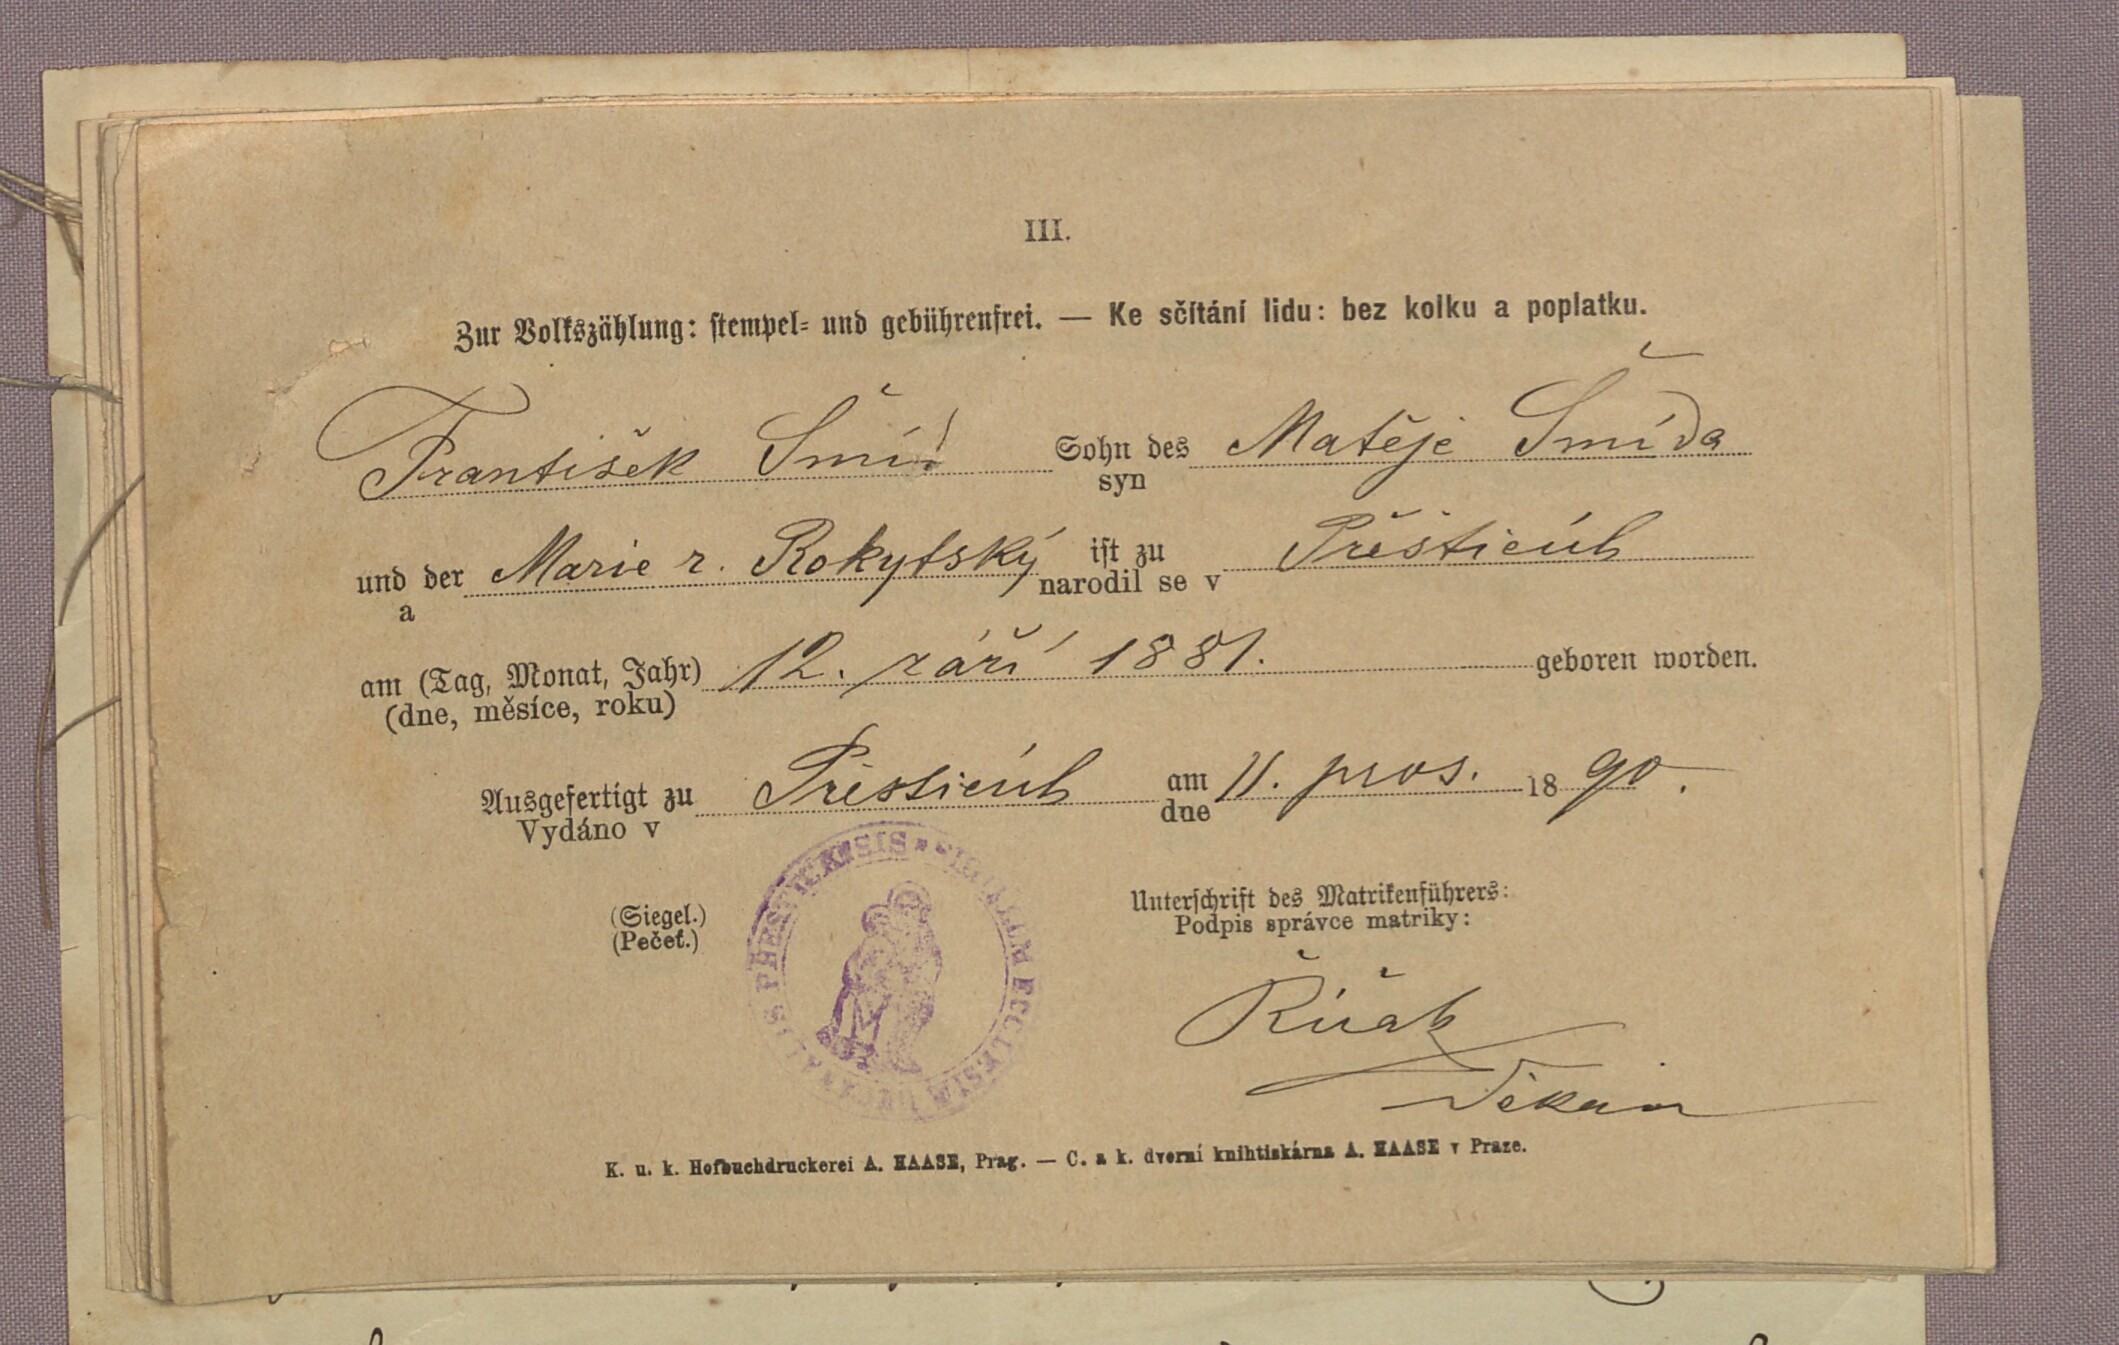 III.
Zur Volkszählung: stempel- und gebührenfrei. — Ke sčítání lidu: bez kolku a poplatku.
František Šmíd Sohn des Matěje Šmída
syn
und der Marie r. Rokytský ist zu Přešticích
a narodil se v
am (Tag, Monat, Jahr) 12. září 1881. geboren worden.
(dne, měsíce, roku)
Ausgefertigt zu Přešticích am 11. pros. 1890.
Vydáno v dne
(Siegel.) Unterschrift des Matrikenführers:
(Pečeť.) Podpis správce matriky:
SIGILLUM ECCLESIÆ DECANALIS PŘESTICENSIS
Děkan
K. u. k. Hofbuchdruckerei A. HAASE, Prag. — C. a k. dvorní knihtiskárna A. HAASE v Praze.